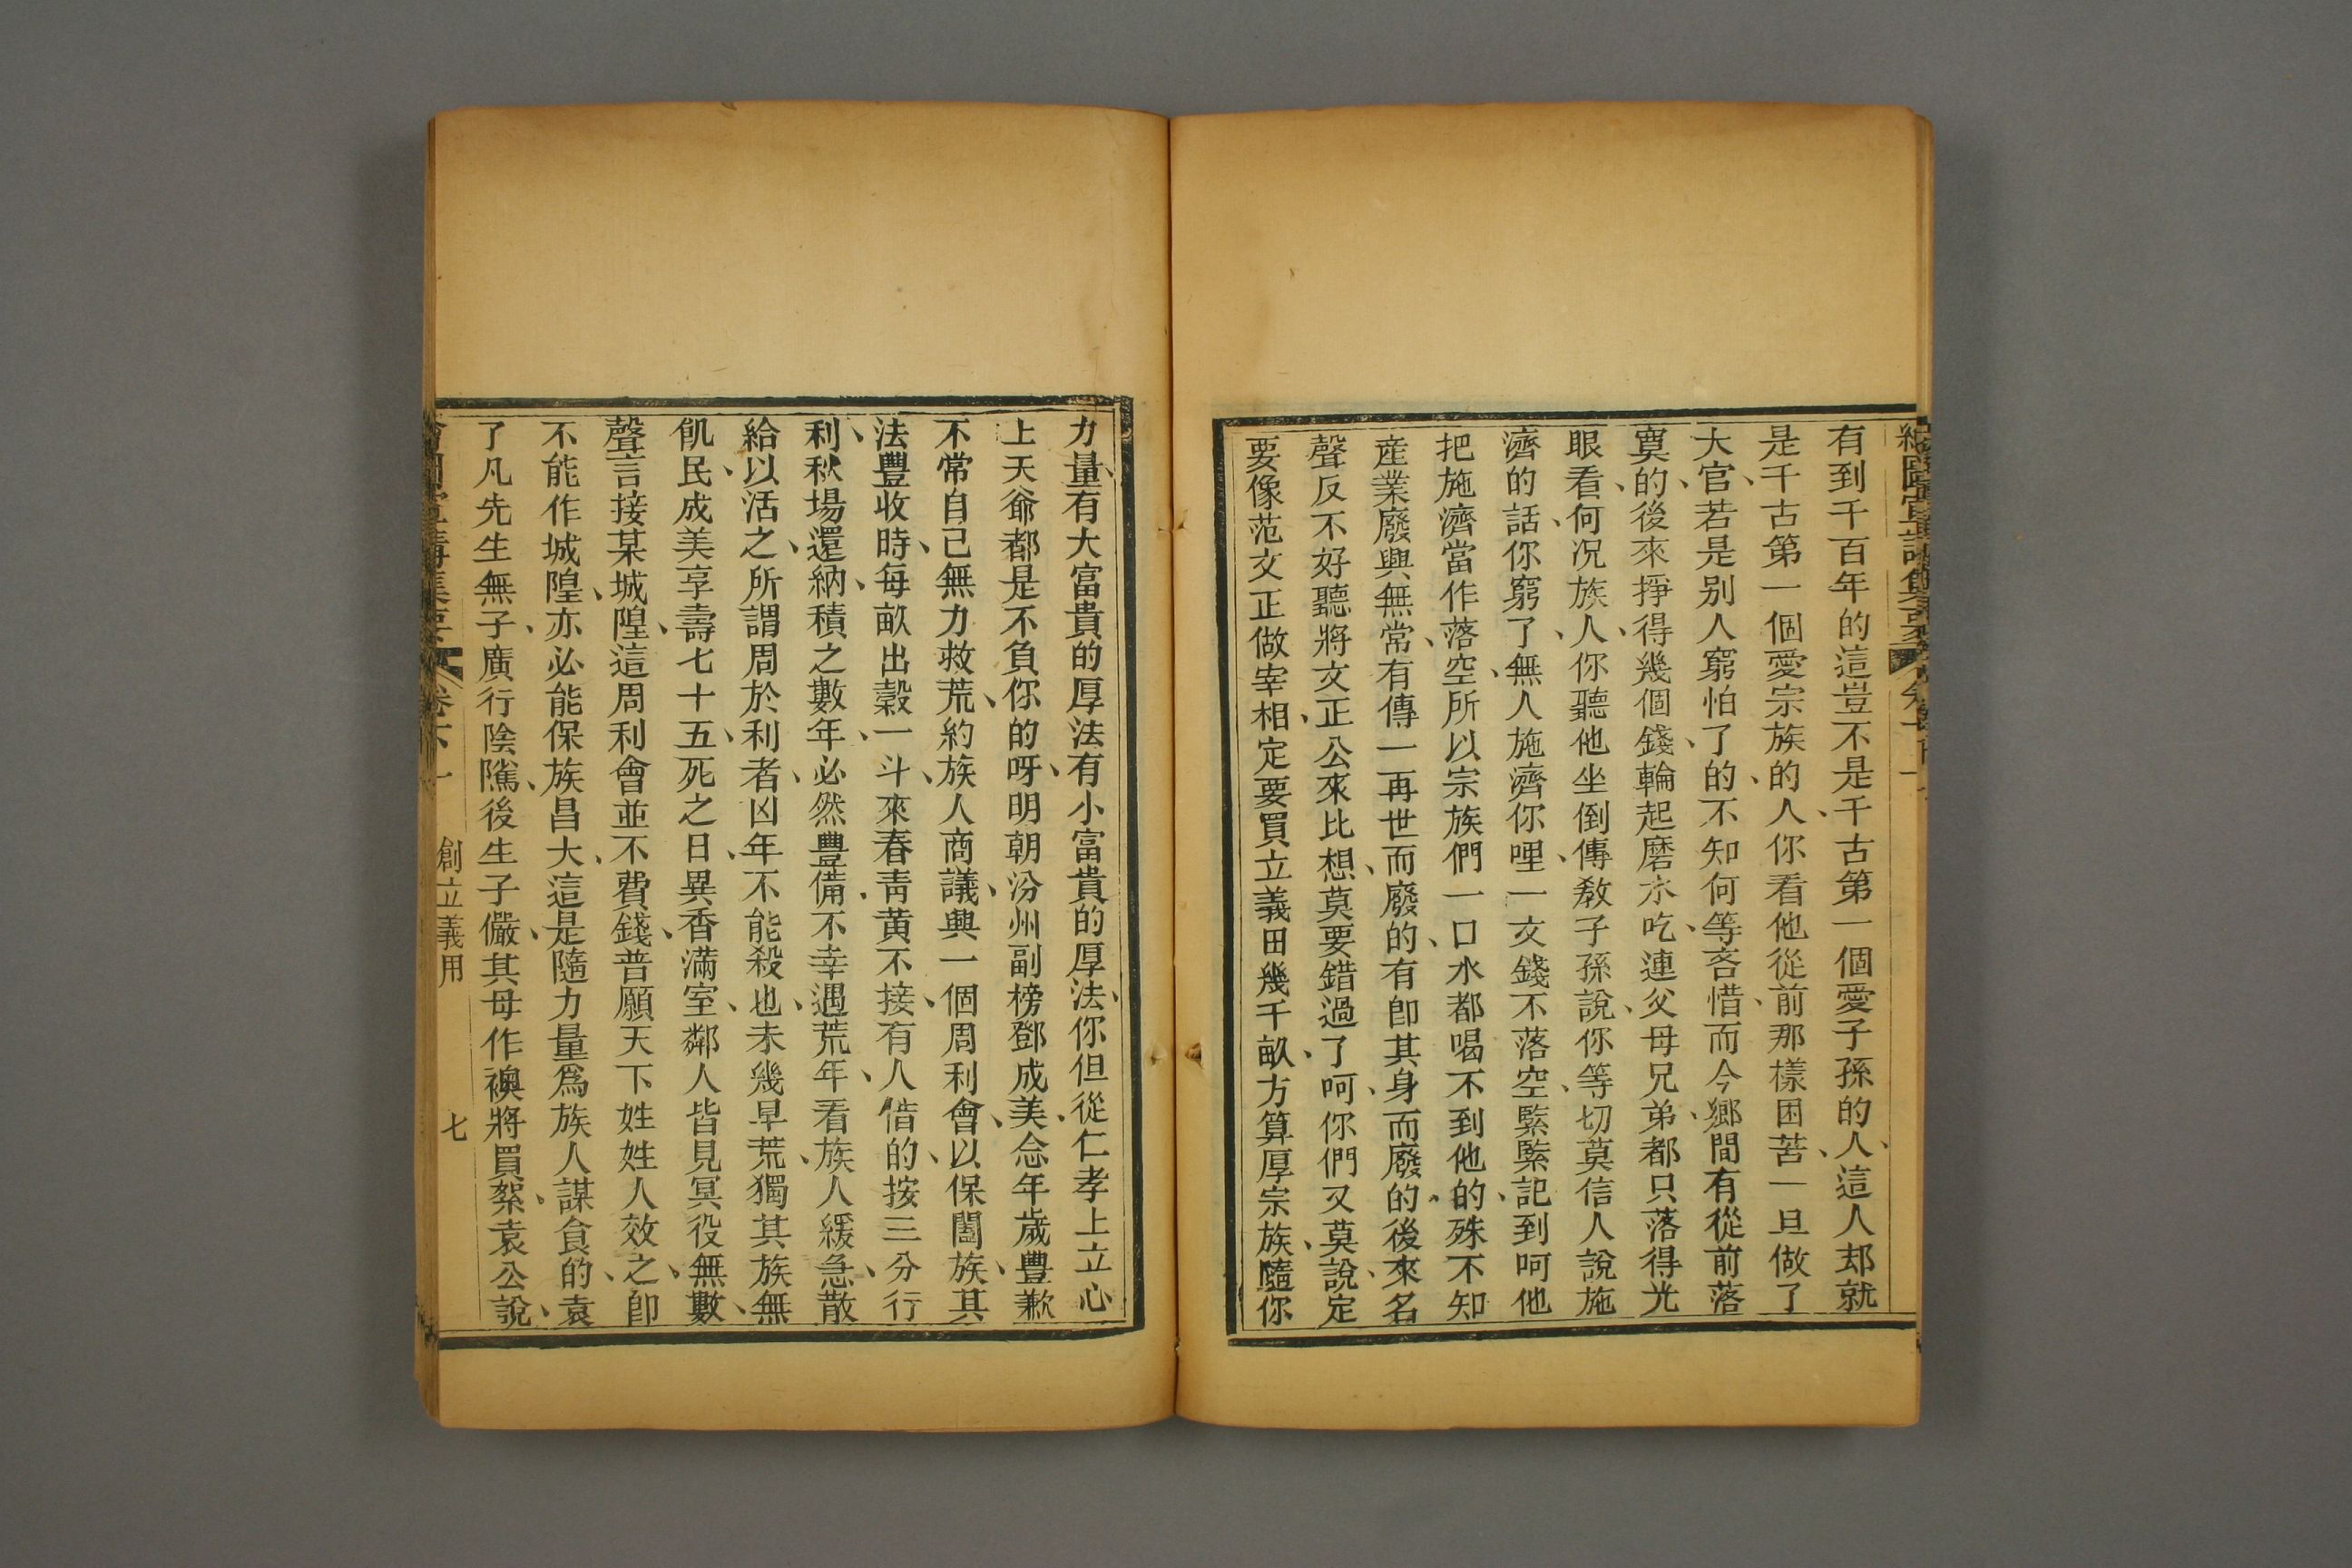 有到千百年的這豈不是千古第一個愛子孫的人、這人却就
是千古第一個愛宗族的人、你看他從前那樣困苦、一旦做了
大官、若是别人窮怕了的、不知何等吝惜、而今鄉間有從前落
寞的、後來掙得幾個錢、輪起磨水吃、連父母兄弟、都只落得光
眼看、何况族人、你聽他坐倒傳教子孫說、你等切莫信人說施
濟的話、你窮了、無人施濟你哩、一文錢不落空、緊緊記到呵他
把施濟當作落空、所以宗族們一口水都喝不到他的、殊不知
産業廢興無常、有傳一再世而廢的、有卽其身而廢的、後來名
聲反不好聽將文正公來比想、莫要錯過了呵、你們又莫說、定
要像范文正做宰相、定要買立義田幾千畝、方算厚宗族、隨你
力量、有大富貴的厚法有小富貴的厚法、你但從仁孝上立心
上天爺都是不負你的呀、明朝汾州副榜鄧成美、念年歲豐歉
不常自己無力救荒、約族人商議、興一個周利會、以保闔族、其
法豐收時、每畝出穀一斗、來春靑黄不接、有人借的、按三分行
利、秋場還納、積之數年、必然豐備、不幸遇荒年、看族人緩急、散
給以活之、所謂周於利者、凶年不能殺也、未幾旱荒、獨其族無
飢民、成美享壽七十五、死之日、異香滿室、鄰人皆見冥役無數、
聲言接某城隍、這周利會並不費錢、普願天下姓姓人效之、卽
不能作城隍、亦必能保族昌大、這是隨力量爲族人謀食的、袁
了凡先生無子、廣行陰隲、後生子儼、其母作襖將買絮、袁公說、
卷下一
創立義田
七